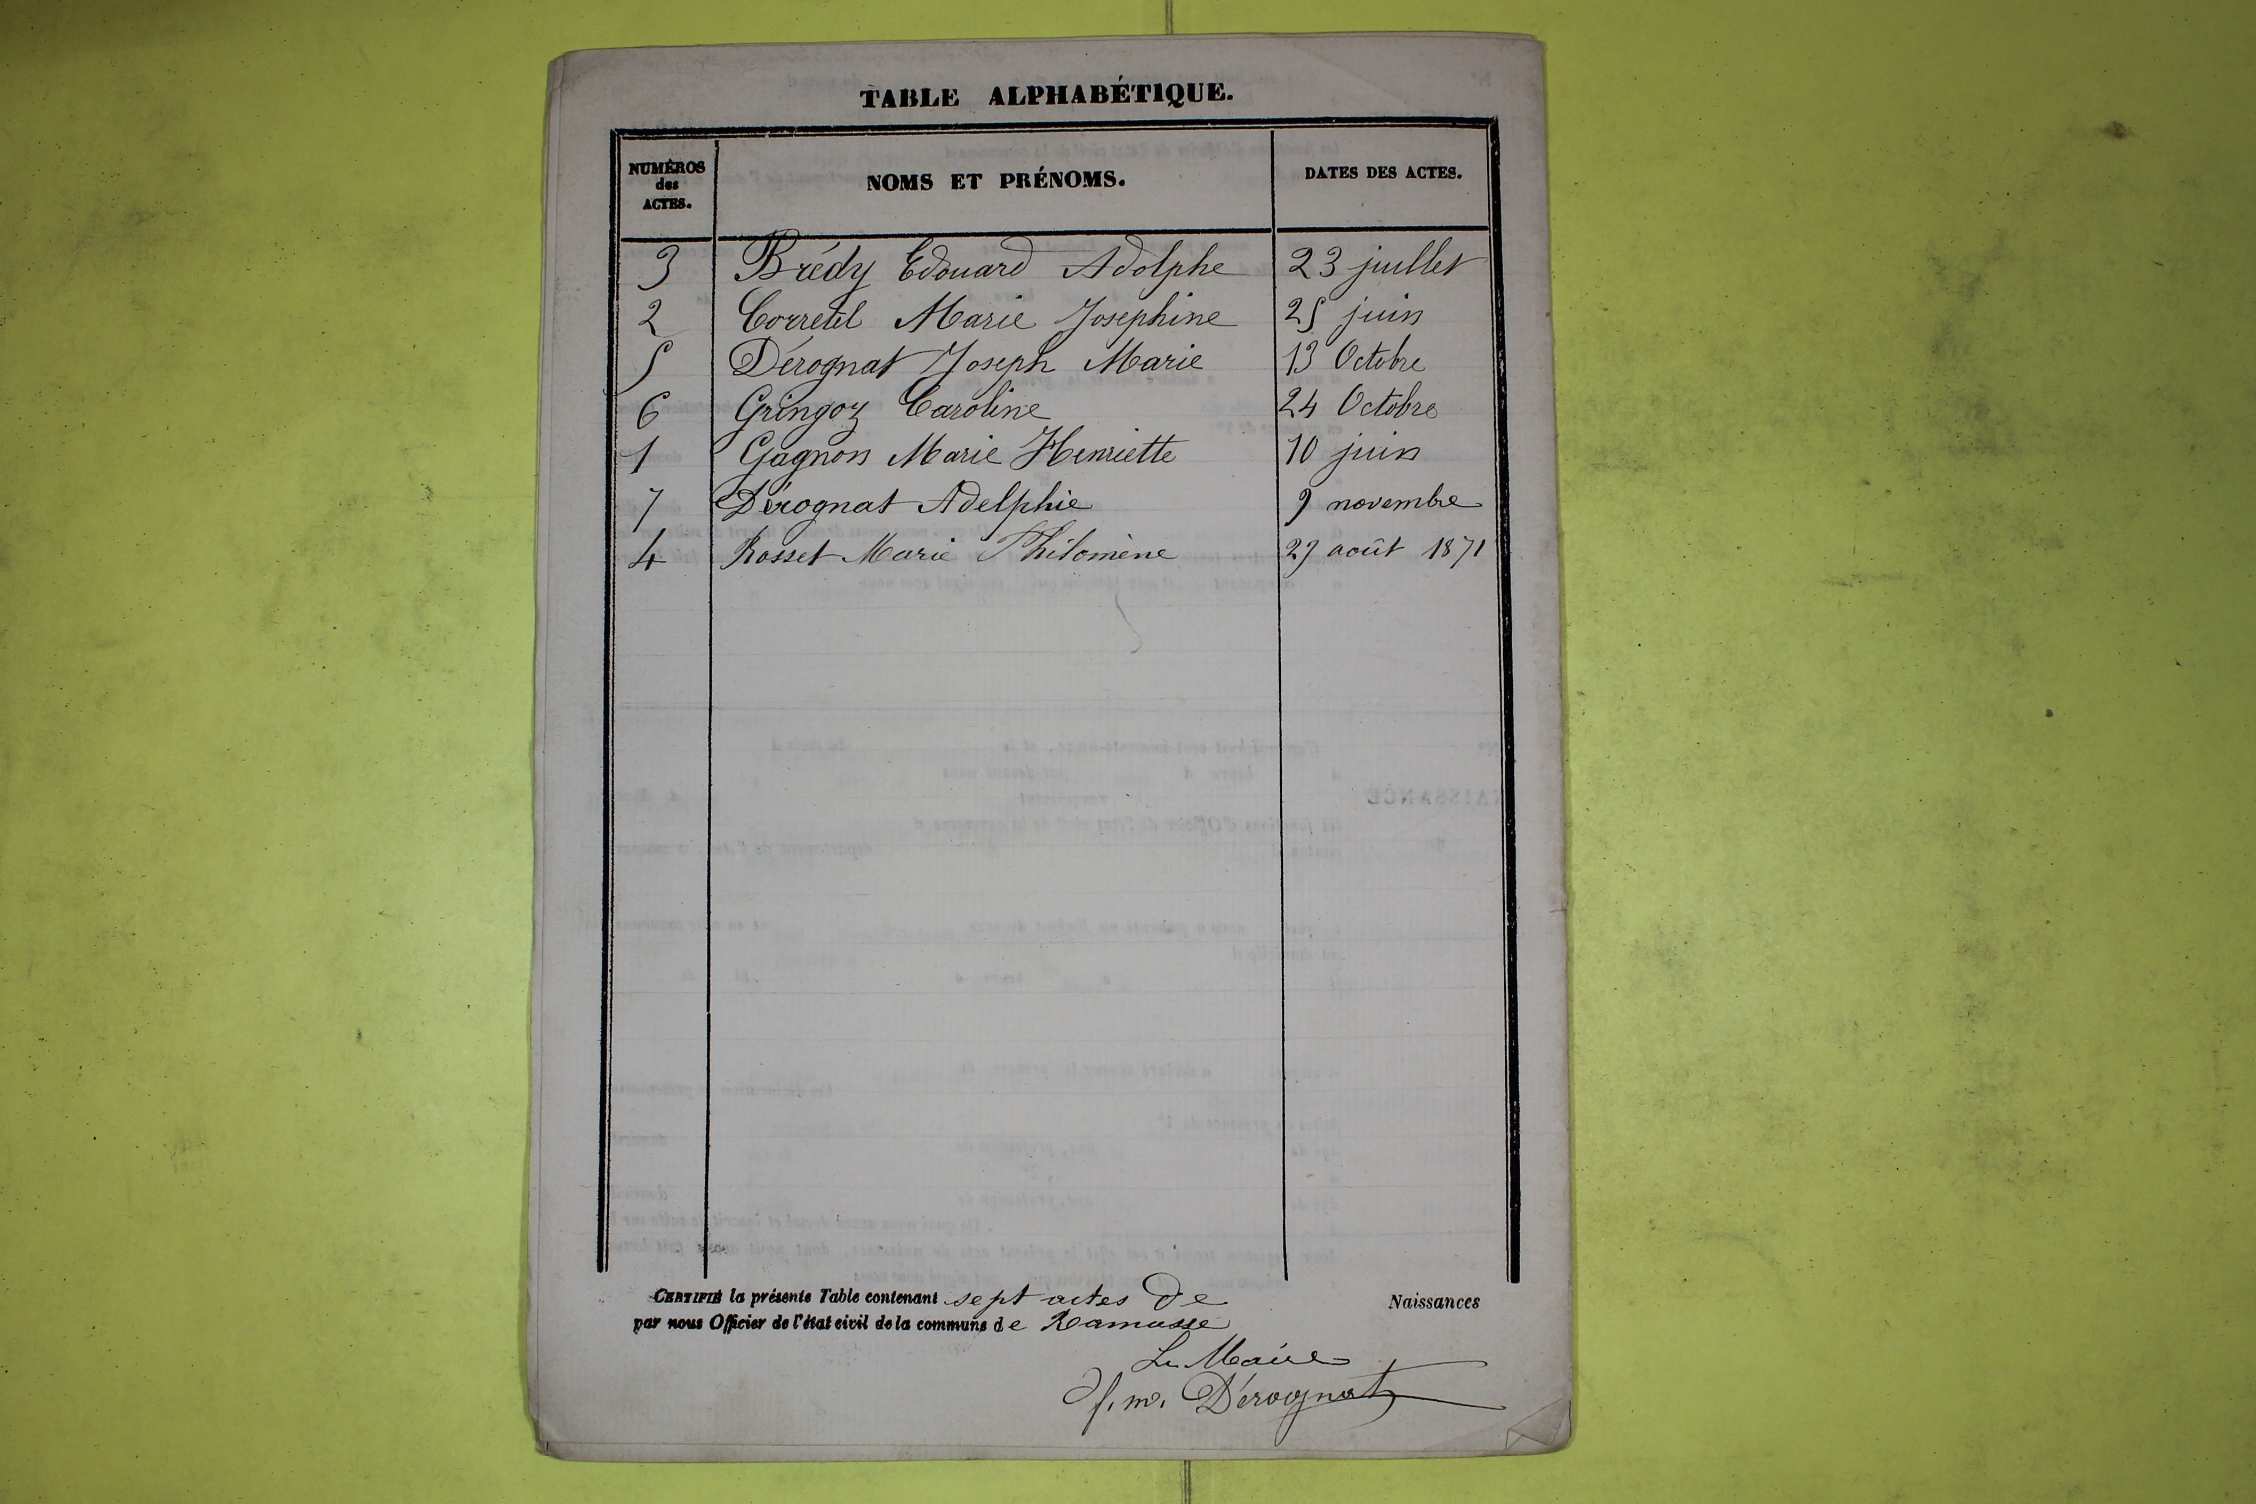 TABLE ALPHABÉTIQUE.
NUMÉROS des ACTES. NOMS ET PRÉNOMS. DATES DES ACTES.
3 Brédy Edouard Adolphe 23 juillet
2 Corretel Marie Josephine 25 juin
5 Dérognat Joseph Marie 13 Octobre
6 Gringoz Caroline 24 Octobre
1 Gagnon Marie Henriette 10 juin
7 Dérognat Adelphie 9 novembre
4 Rosset Marie Philomène 29 août 1871
CERTIFIÉ la présente Table contenant sept actes de Naissances
par nous Officier de l'état civil de la commune de Ramasse
Le Maire
f. m. Dérognat